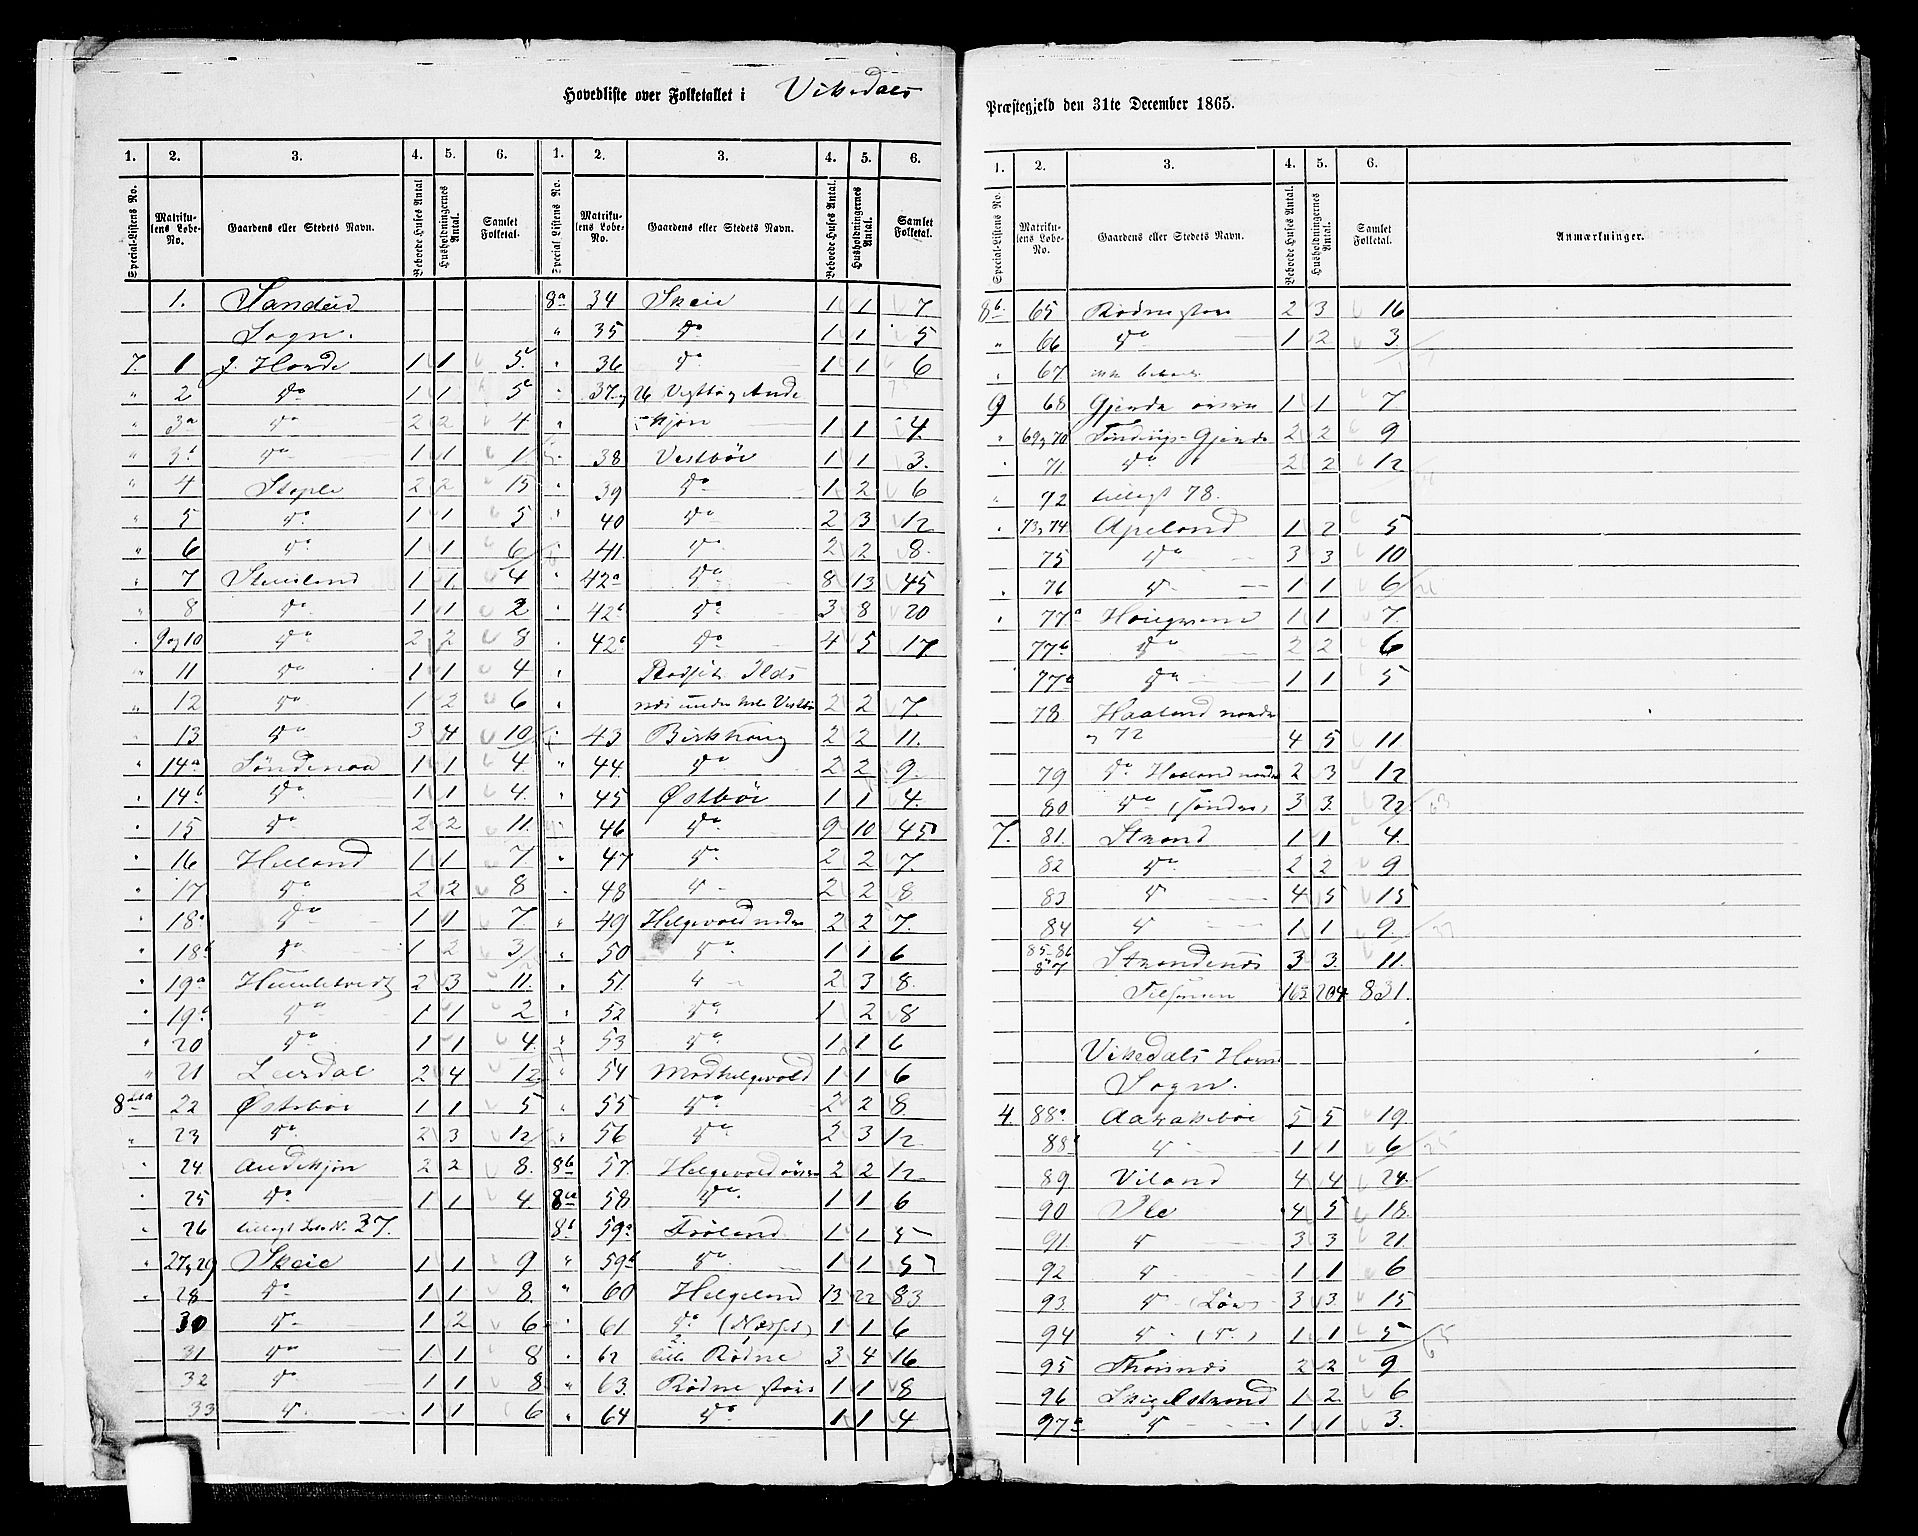 Hovedliste over Folketallet i Vikedals
Præstegjeld den 31te December 1865.
1. 2. 3. 4. 5. 6. 1. 2. 3. 4. 5. 6.
Special-Listens No. Matrikulens Løbe-No. Gaardens eller Stedets Navn. Beboede Huses Antal Husholdningernes Antal. Samlet Folketal. Special Listens No. Matrikulens Løbe-No. Gaardens eller Stedets Navn. Beboede Huses Antal. Husholdningernes Antal. Samlet Folketal.
1. Sandeid 8a 34 Skeie 1 1 7.
Sogn. " 35 do 1 1 5
7. 1 Horde 1 1 5. " 36 do 1 1 6
" 2 do 1 1 5 37 og 26 Vestbø og Ande
" 3a do 2 2 4 kjøn 1 1 4.
" 3b do 1 1 1 38 Vestbøe 1 1 3.
" 4 Stople 2 2 15 39 do 1 2 6
" 5 do 1 1 5 40 do 2 3 12
" 6 do 1 1 6 41 do 2 2 8.
" 7 1 1 4 42a do 8 13 45
" 8 do 1 1 2 42b do 3 8 20
9 og 10 do 2 2 8 42c do 4 5 17
" 11 do 1 1 4 Pladset Ilds
" 12 do 1 2 6 næs under hele Vestbø 2 2 7.
13 do 3 4 10 43 Birkhoug 2 2 11.
" 14a Søndenaa 1 1 4. " 44 do 2 2 9.
" 14b do 1 1 4. " 45 Østbøe 1 1 4.
" 15 do 2 2 11. 46 do 9 10 45
" 16 Helland 1 1 7 " 47 do 2 2 7.
" 17 do 2 2 8 48 d 2 2 8
" 18a do 1 1 7. " 49 Helgevold nedre 2 2 7.
" 18b do 1 2 3 50 do 1 1 6
" 19a Humlekvedt 2 3 11. " 51 " 2 3 8.
" 19b do 1 1 2 " 52 do 1 2 8
" 20 do 1 1 4. " 53 do 1 1 6
" 21 Leirdal 2 4 12 54 Modhelgevold 1 1 6
8a 22 Østebøe 1 1 5 " 55 do 2 2 8.
" 23 do 2 3 12 " 56 do 2 3 12
" 24 Andekjøn 2 2 8. 8b 57. Helgevold øvre 2 2 12
" 25 do 1 1 4. 8a 58 do 1 1 6
" 26 tillagt Løb N. 37. 8b 59a Frøland 1 1 5
" 27 og 29 Skeie 1 1 9 " 59b do 1 1 5
" 28 do 1 1 8. " 60 Helgeland 13 22 83
30 do 1 2 6 61 do 1 1 6
31 do 1 1 8 62 lille Rødne 3 4 16
32 do 1 1 8 " 63. Rødne store 1 1 8
33 d 1 1 6 " 64 do 1 1 4
1. 2. 3. 4. 5. 6.
Special-Listens No. Matrikulens Løbe-No. Gaardens eller Stedets Navn. Beboede Huses Antal. Husholdningernes Antal. Samlet Folketal. Anmærkninger.
8b. 65 Rødne store 2 3 16
" 66 do 1 2 3
" 67 ikke beboet
9 68 Gjerde øvre 1 1 7
" 69 og 70 Gjerde 2 2 9
71. do 2 2 12
" 72 tillagt 78.
" 73 og 74 Apeland 1 2 5
75 do 3 3 10
" 76 d 1 1 6
" 77a 1 1 7.
77b do 2 2 6
77c do 1 1 5
78 Haaland nordre
og 72 4 5 11
79 do Haaland nordre 2 3 12
80 do (søndre) 3 3. 22
7. 81. Strand 1 1 4.
82 do 2 2 9
83 d 4 5 15
84 d 1 1 9.
85-86 87 Strandenæs 3 3. 11.
Tilsammen 163 204 831.
Vikedals Hoved
Sogn.
4. 88a Aarakebøe 5 5 19
88b d 1 1 6
89 Viland 4 4 24.
90 Øle 4 5 18.
91. d 3 3 21.
92 d 1 1 6
93. d 3 3 15
94 d (do) 1 1 5
95 2 2 9
96 1 2. 6
97a d 1 1 3.